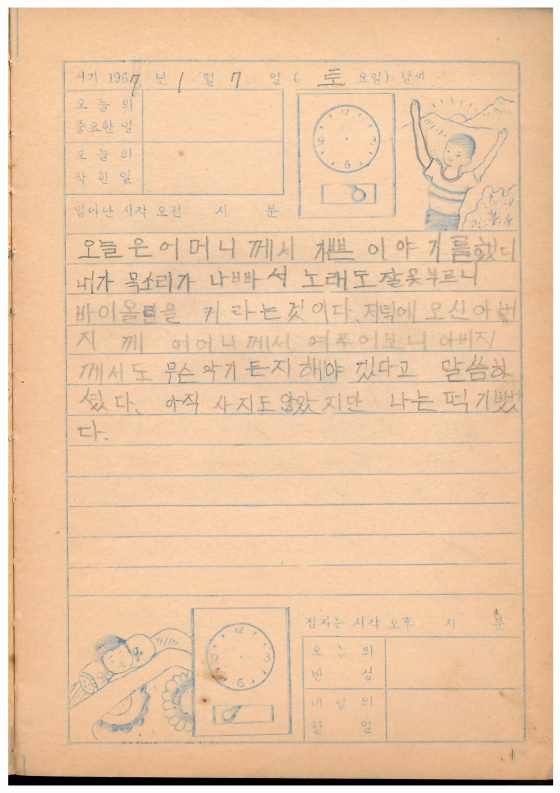 서기 1967년 1월 7일 (토요일) 날씨
오늘의
중요한 일
오늘의
착한 일
일어난 시각 오전 시 분
오늘은 어머니께서 이야기를 했다
내가 목소리가 나빠서 노래도 잘못 부르니
바이올린을 키라는 것이다. 저녁에 오신 아버
지께 어머니께서 여쭈어보니 아버지
께서도 무슨 악기든지 해야 겠다고 말씀하
셨다. 아직 사지도 않았지만 나는 퍽 기뻤
다.
잠자는 시각 오후 시 분
오늘의
반성
내일의
할 일